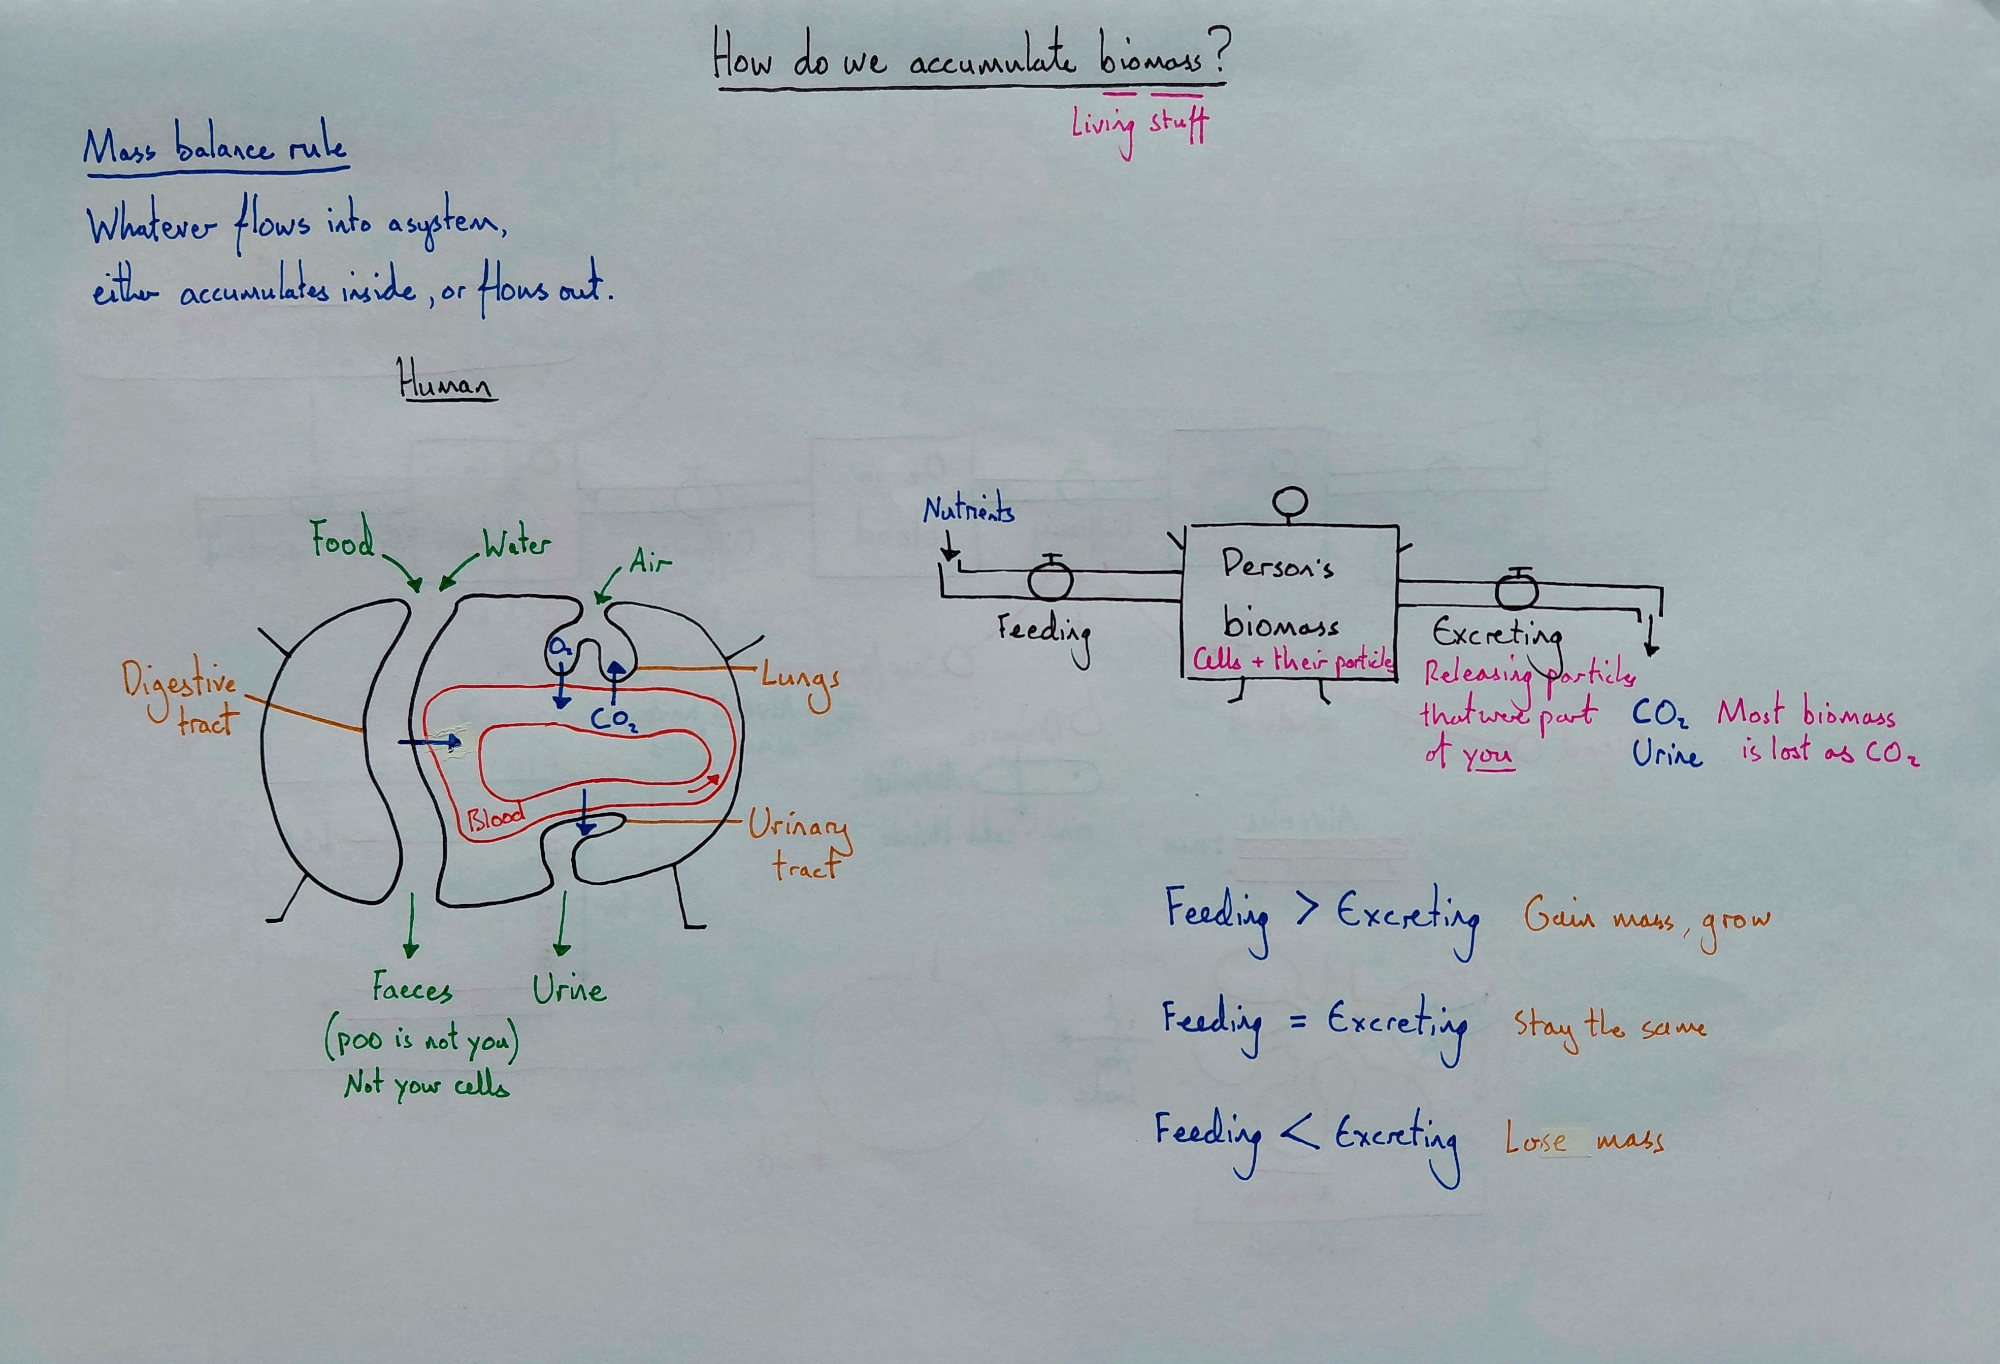 How do we accumulate biomass?
Living stuff
Mass balance rule
Whatever flows into a system,
either accumulates inside, or flows out.
Human
Food
Water
Air
O₂
CO₂
Digestive
tract
Lungs
Blood
Urinary
tract
Faeces
(poo is not you)
Not your cells
Urine
Nutrients
Feeding
Person's
biomass
Cells + their particles
Excreting
Releasing particles
that were part
of you
CO₂
Urine
Most biomass
is lost as CO₂
Feeding > Excreting Gain mass, grow
Feeding = Excreting Stay the same
Feeding < Excreting Lose mass